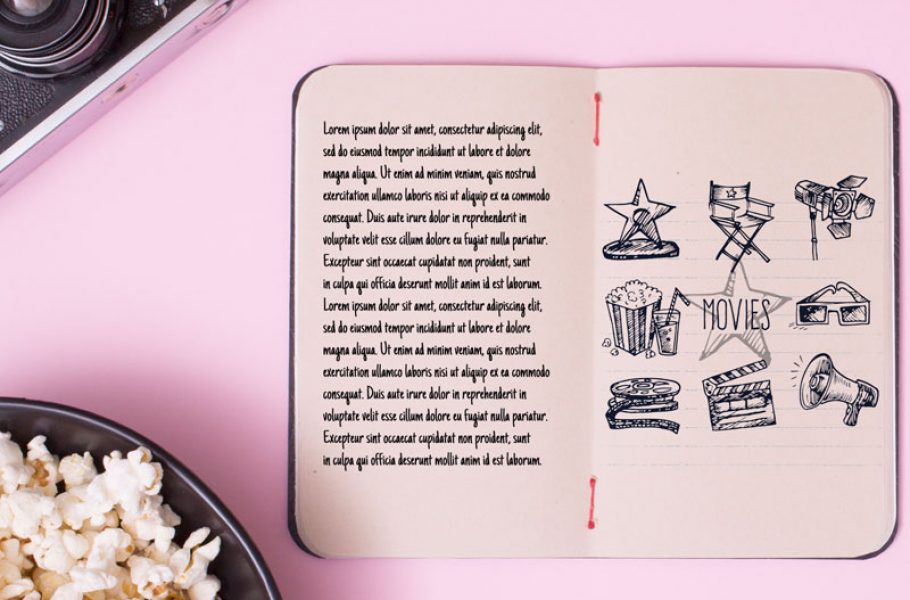 Lorem ipsum dolor sit amet, consectetur adipiscing elit,
sed do eiusmod tempor incididunt ut labore et dolore
magna aliqua. Ut enim ad minim veniam, quis nostrud
exercitation ullamco laboris nisi ut aliquip ex ea commodo
consequat. Duis aute irure dolor in reprehenderit in
voluptate velit esse cillum dolore eu fugiat nulla pariatur.
Excepteur sint occaecat cupidatat non proident, sunt
in culpa qui officia deserunt mollit anim id est laborum.
Lorem ipsum dolor sit amet, consectetur adipiscing elit,
sed do eiusmod tempor incididunt ut labore et dolore
magna aliqua. Ut enim ad minim veniam, quis nostrud
exercitation ullamco laboris nisi ut aliquip ex ea commodo
consequat. Duis aute irure dolor in reprehenderit in
voluptate velit esse cillum dolore eu fugiat nulla pariatur.
Excepteur sint occaecat cupidatat non proident, sunt
in culpa qui officia deserunt mollit anim id est laborum.
MOVIES